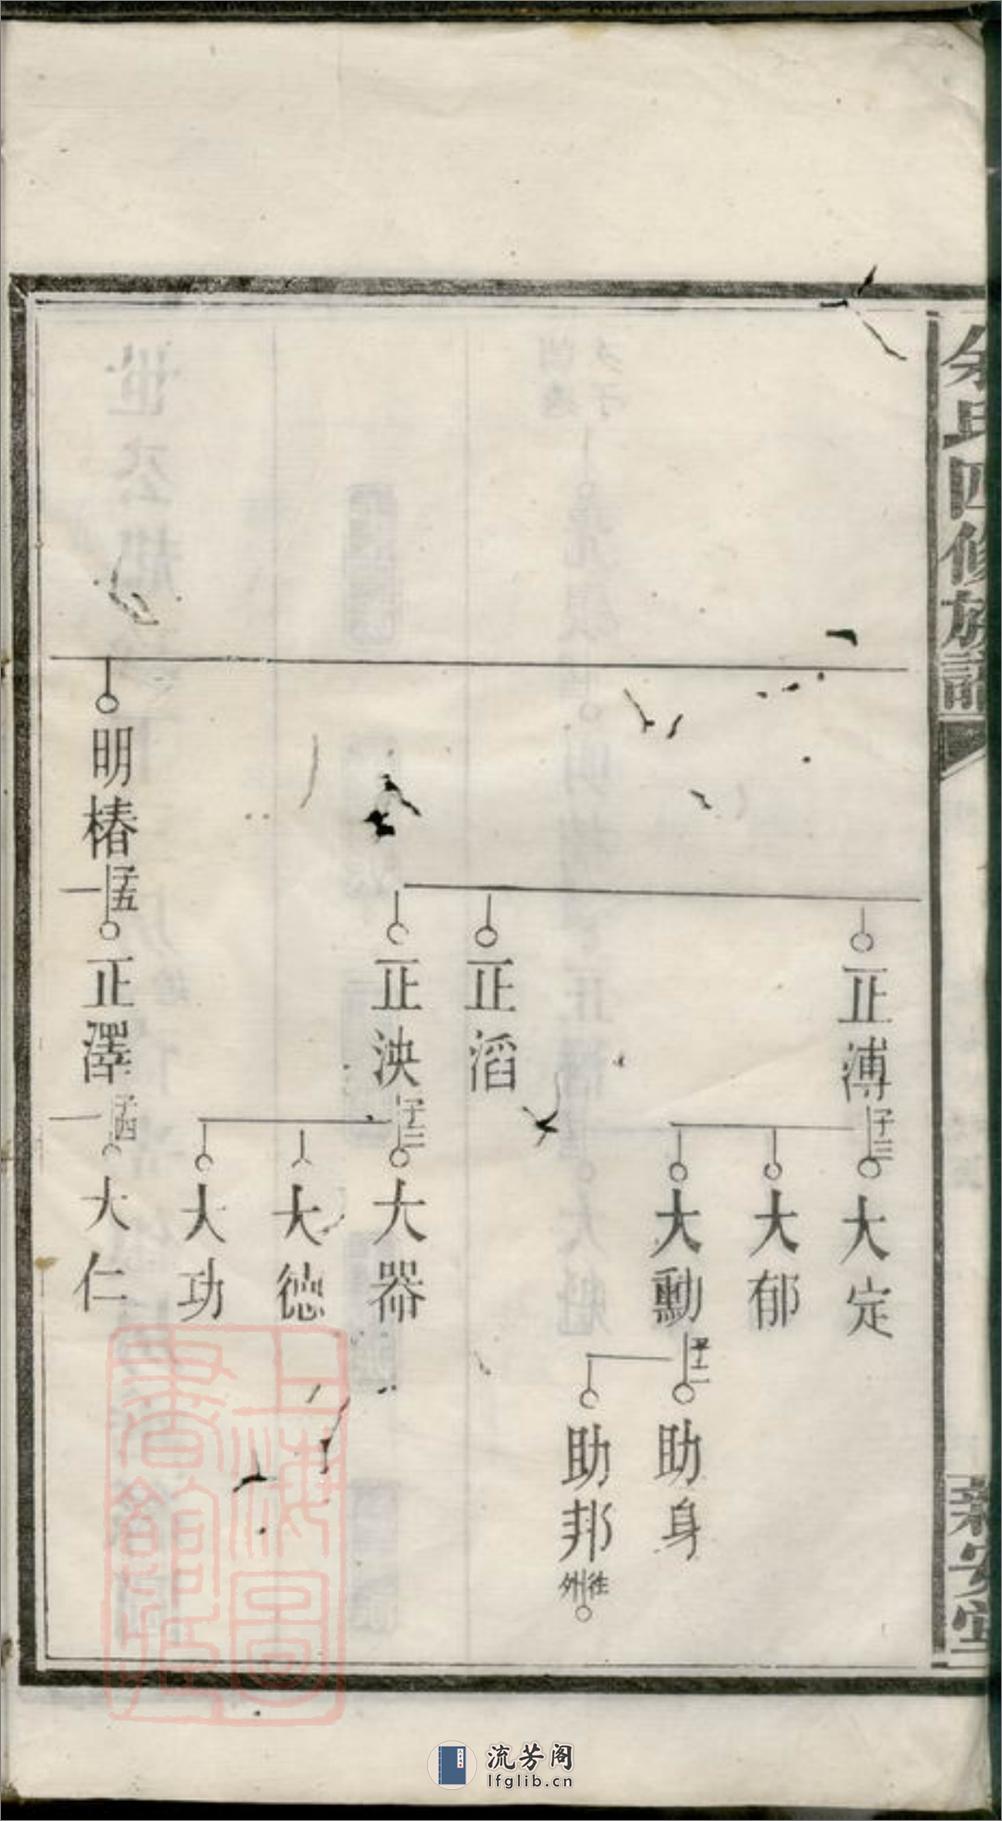 余氏四修族譜
新安堂
正溥
子三
大定
大郁
大勳
子二
助身
助邦
往外
正滔
正泱
子三
大器
大德
大功
明椿
子五
正澤
子四
大仁
上海圖書館藏
流芳阁
lfglib.cn